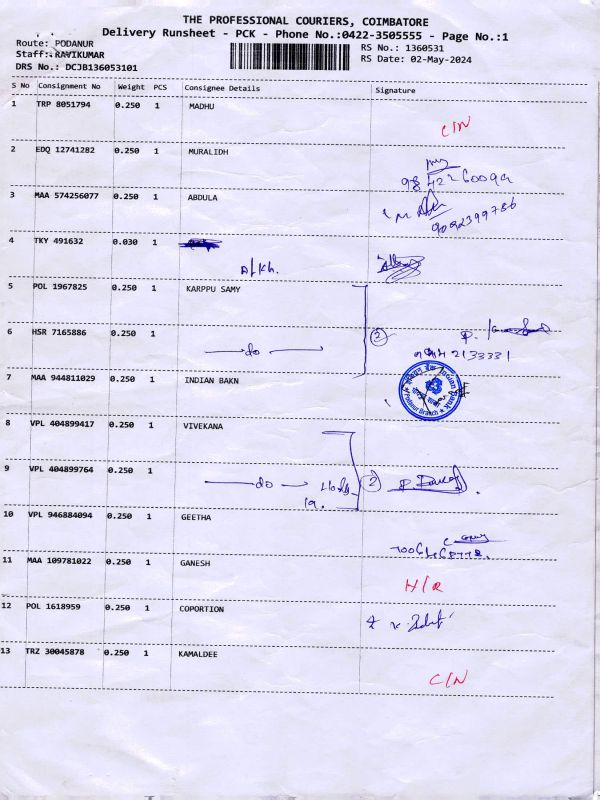 THE PROFESSIONAL COURIERS, COIMBATORE
Delivery Runsheet - PCK - Phone No.:0422-3505555 - Page No.:1
Route: PODANUR
RS No.: 1360531
Staff: RAVIKUMAR
RS Date: 02-May-2024
DRS No.: DCJB136053101
S No Consignment No Weight PCS Consignee Details Signature
1 TRP 8051794 0.250 1 MADHU
C/N
2 EDQ 12741282 0.250 1 MURALIDH
3 MAA 574256077 0.250 1 ABDULA
9092399786
4 TKY 491632 0.030 1
5 POL 1967825 0.250 1 KARPPU SAMY
6 HSR 7165886 0.250 1
do
2
7 MAA 944811029 0.250 1 INDIAN BAKN
Podanur Branch
8 VPL 404899417 0.250 1 VIVEKANA
9 VPL 404899764 0.250 1
do
2
10 VPL 946884094 0.250 1 GEETHA
11 MAA 109781022 0.250 1 GANESH
H/R
12 POL 1618959 0.250 1 COPORTION
13 TRZ 30045878 0.250 1 KAMALDEE
C/N